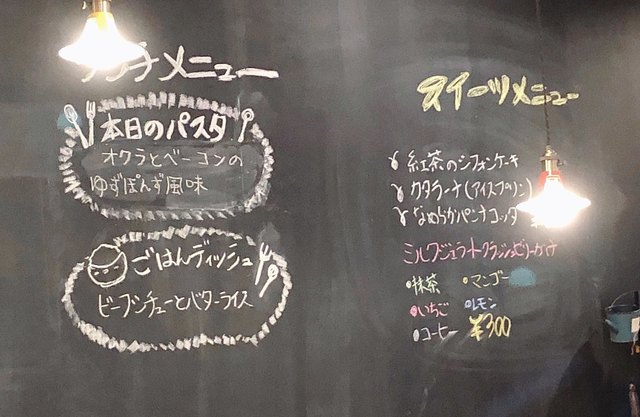 ランチメニュー
本日のパスタ
オクラとベーコンの
ゆずぽんず風味
ごはんディッシュ
ビーフシチューとバターライス
スイーツメニュー
紅茶のシフォンケーキ
カタラーナ(アイスプリン)
なめらかパンナコッタ
ミルクジェラート
・抹茶 ・マンゴー
・いちご ・レモン
・コーヒー ¥300